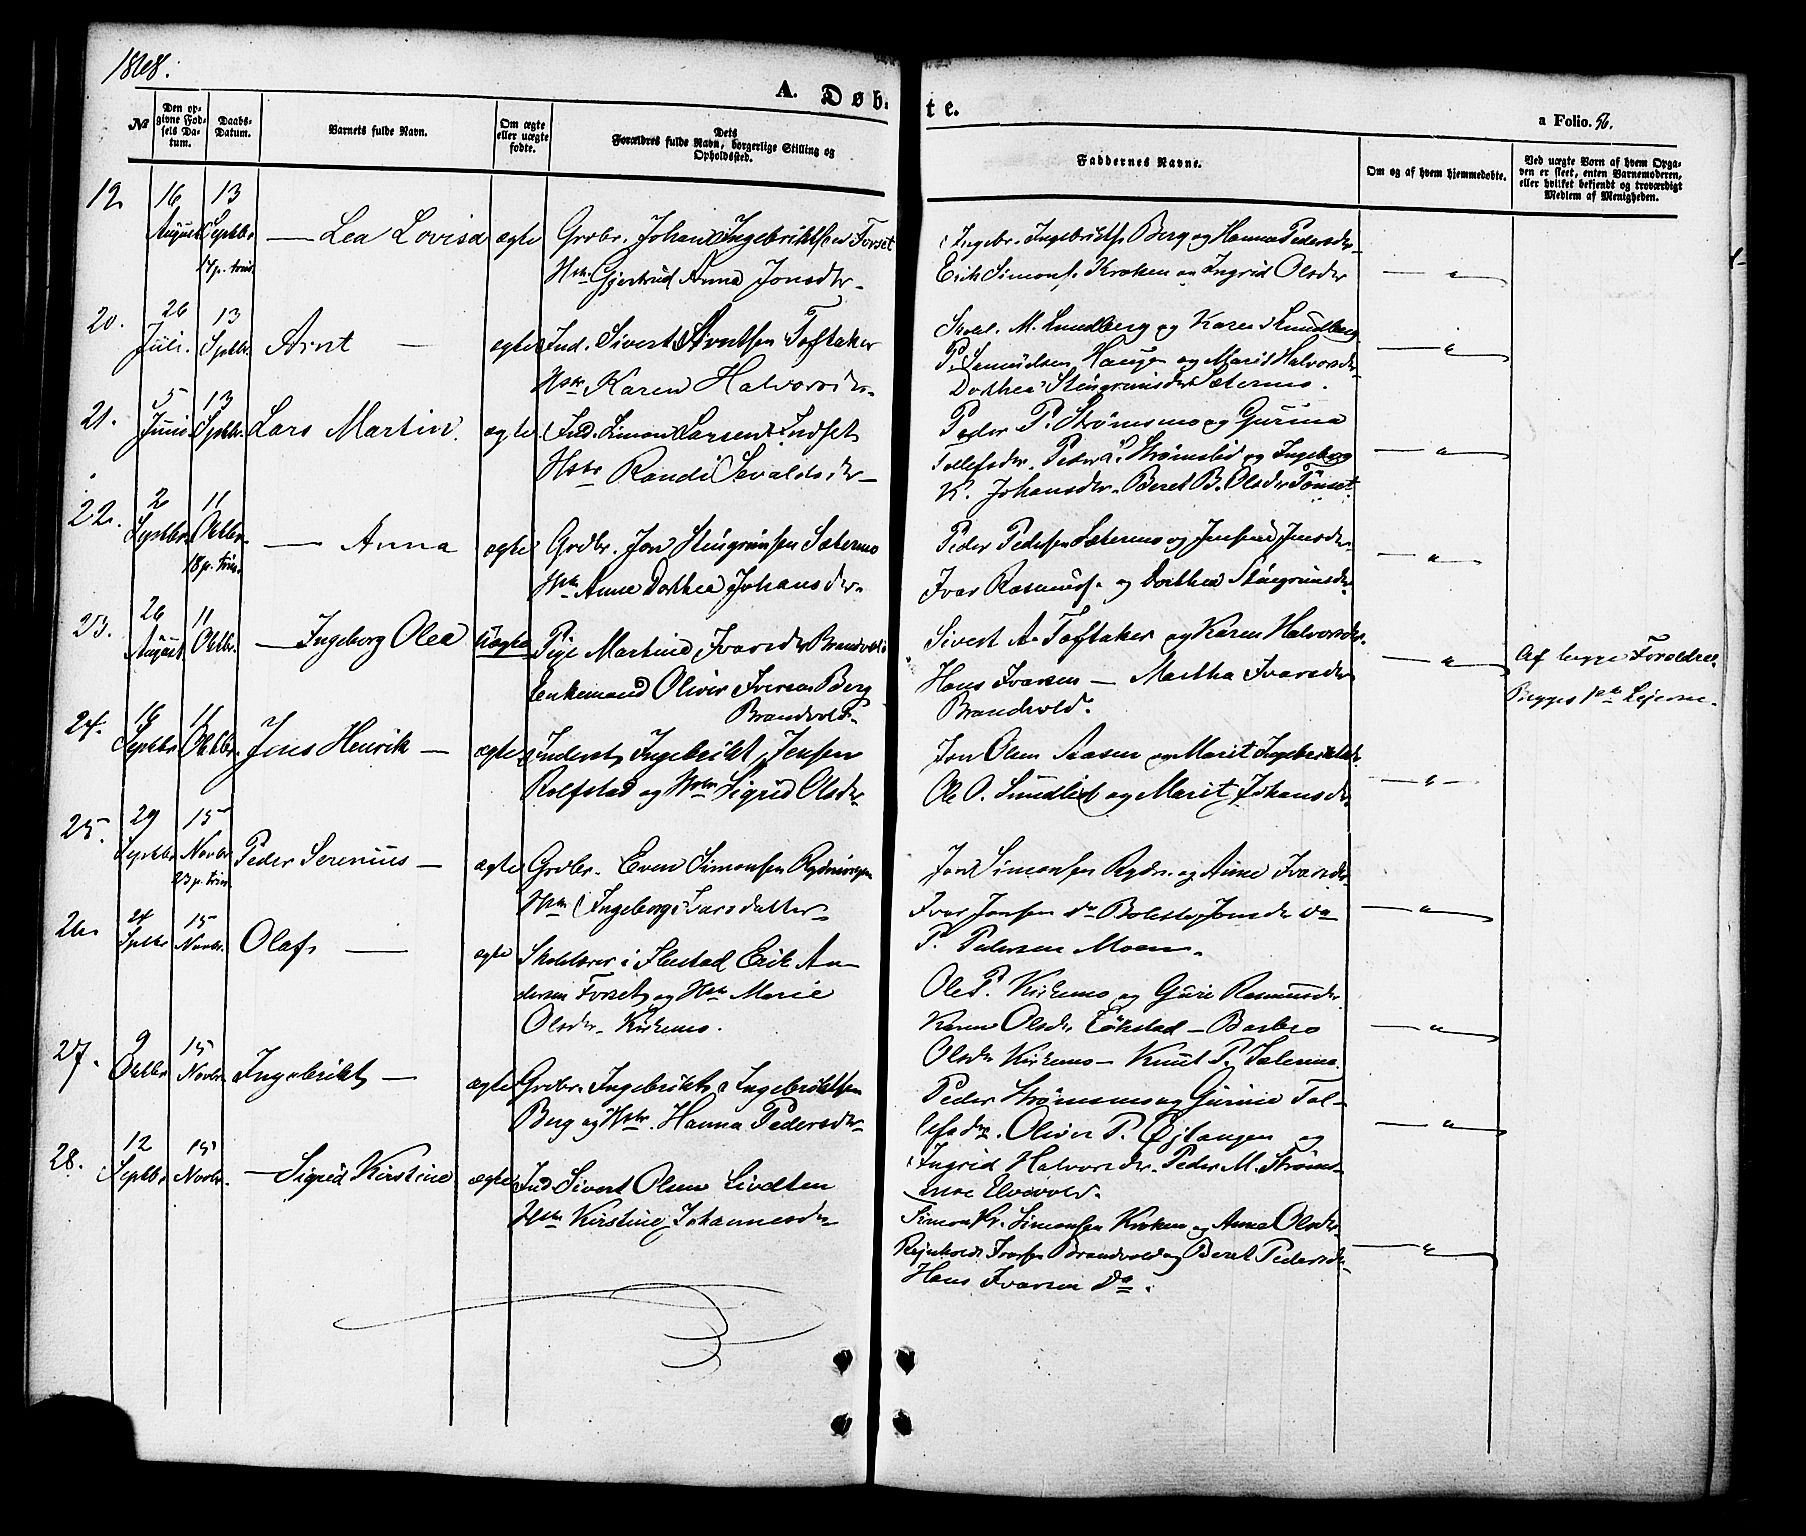 1868.
A. Døbte.
a Folio. 56.
№
Den opgivne Fødsels Datum.
Daabs-Datum.
Barnets fulde Navn.
Om ægte eller uægte fødte.
Dets Forældres fulde Navn, borgerlige Stilling og Opholdssted.
Faddernes Navne.
Om og af hvem hjemmedøbte.
Ved uægte Børn af hvem Opgaven er skeet, enten Barnemoderen, eller hvilket bekjendt og troværdigt Medlem af Menigheden.
19. 16 August 13 Septbr. 17 p. trin. Lea Lovisa ægte Grdbr. Johan Ingebriktsen Forset
Hstr. Gjertrud Anna Jonsdtr.
Ingebr. Ingebriktsn Berg og Hanna Pedersdr.
Erik Simons. Kroken og Ingrid Olsdr
20. 26 Juli. 13 Septbr. Arnt ægte Ind. Sivert Toftaker
Hstr Karen Halvorsdr.
M. Lundberg og Karen Lundberg
P. Samuelsen Haugen og Marit Halvorsdr
Dorthea Steingrimsdr Sætermo.
21. 5 Juni 13 Septbr. Lars Martin. ægte Ind. Simon Larsen Indset
Hstr Randi Sevaldsdr
Peder P. Strømsmo og Gurina
Tollefsdr. Peder Strømslid og Ingeborg
K. Johansdr. Beret B. Olsdr Tønset
22. 2 Septbr. 11 Octbr. 18 p. trin. Anna ægte Grdbr. Jon Steingrimsen Sætermo
Hstr Anne Dorthea Johansdr.
Peder Pedersen Sætermo og Jonsdr.
Ivar Rasmus. og Dorthea Steingrimsdr
23. 26 August 11 Octbr. Ingeborg Olea uægte Pige Martine Ivarsdr Brandvold
Enkemand Oliver Iversen Berg
Brandvold.
Sivert A. Toftaker og Karen Halvorsdr.
Hans Ivarsen — Martha Ivarsdr
Brandvold.
Af begge Forældre.
Begges 1ste Lejerm.
24. 16 Septbr. 11 Octbr. Jens Henrik ægte Inderst Ingebrikt Jensen
Rolfstad og Hstr Sigrid Olsdr
Jon Olsen Aasen og Marit Ingebriktsdr.
Ole O. Sundlid og Marit Johansdr
25. 29 Septbr 15 Novbr. 23 p. trin. Peder Serenius ægte Grdbr. Even Simonsen Rydningen
Hstr. Ingeborg Larsdatter
Jon Simonsen Rydn. og Anne Ivarsdr.
Ivar Jonsen do Jonsdr do
P. Pedersen Moen.
26. 24 Septbr 15 Novbr. Olaf ægte Skolelærer i Flustad Erik An-
dersen Forset og Hstr Marie
Olsdr. Kirkemo.
Ole P. Kirkemo og Guri Rasmusdr.
Karen Olsdr Løkstad — Barbro
Olsdr Kirkemo — Knut P.
27. 9 Octbr 15 Novbr. Ingebrikt ægte Grdbr. Ingebrikt Ingebriktsen
Berg og Hstr. Hanna Pedersdr
Peder Strømsmo og Gurine Tol-
lefsdr. Oliver P. og
Ingrid Halvorsdr. Peder M. Strøms-
moe Elvevold.
28. 12 Septbr 15 Novbr. Sigrid Kirstine ægte Ind. Sivert Olsen
Hstr Kirstine Johannesdr
Simon Kr. Simonsen Kroken og Anne Olsdr.
Rejnholdt Ivarsen Brandvold og Beret Pedersdr.
Hans Ivarsen do.